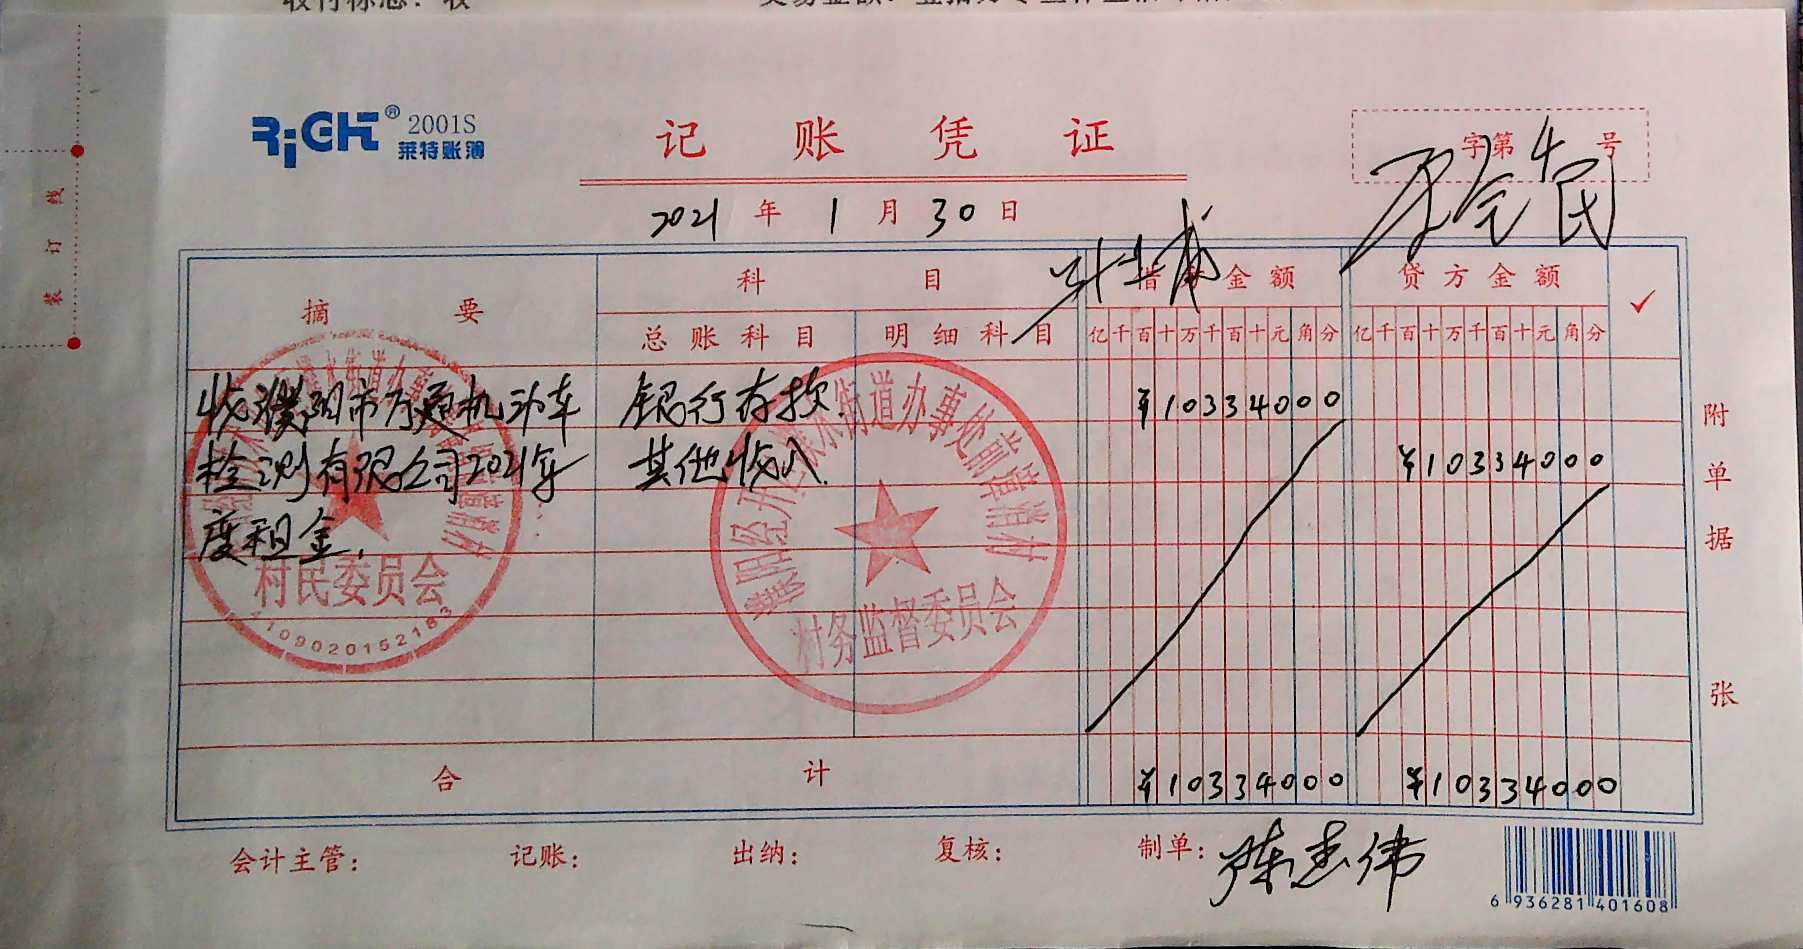 RiCH® 2001S
莱特账簿
记账凭证
字第4号
2021年1月30日
装订线
摘要
科目
借方金额
贷方金额
✓
总账科目
明细科目
亿千百十万千百十元角分
亿千百十万千百十元角分
收濮阳市万通机动车
银行存款.
¥10334000
检测有限公司2021年
其他收入.
¥10334000
度租金.
村民委员会
4109020152183
村务监督委员会
附单据
张
合计
¥10334000
¥10334000
会计主管:
记账:
出纳:
复核:
制单:
陈志伟
6 936281 401608